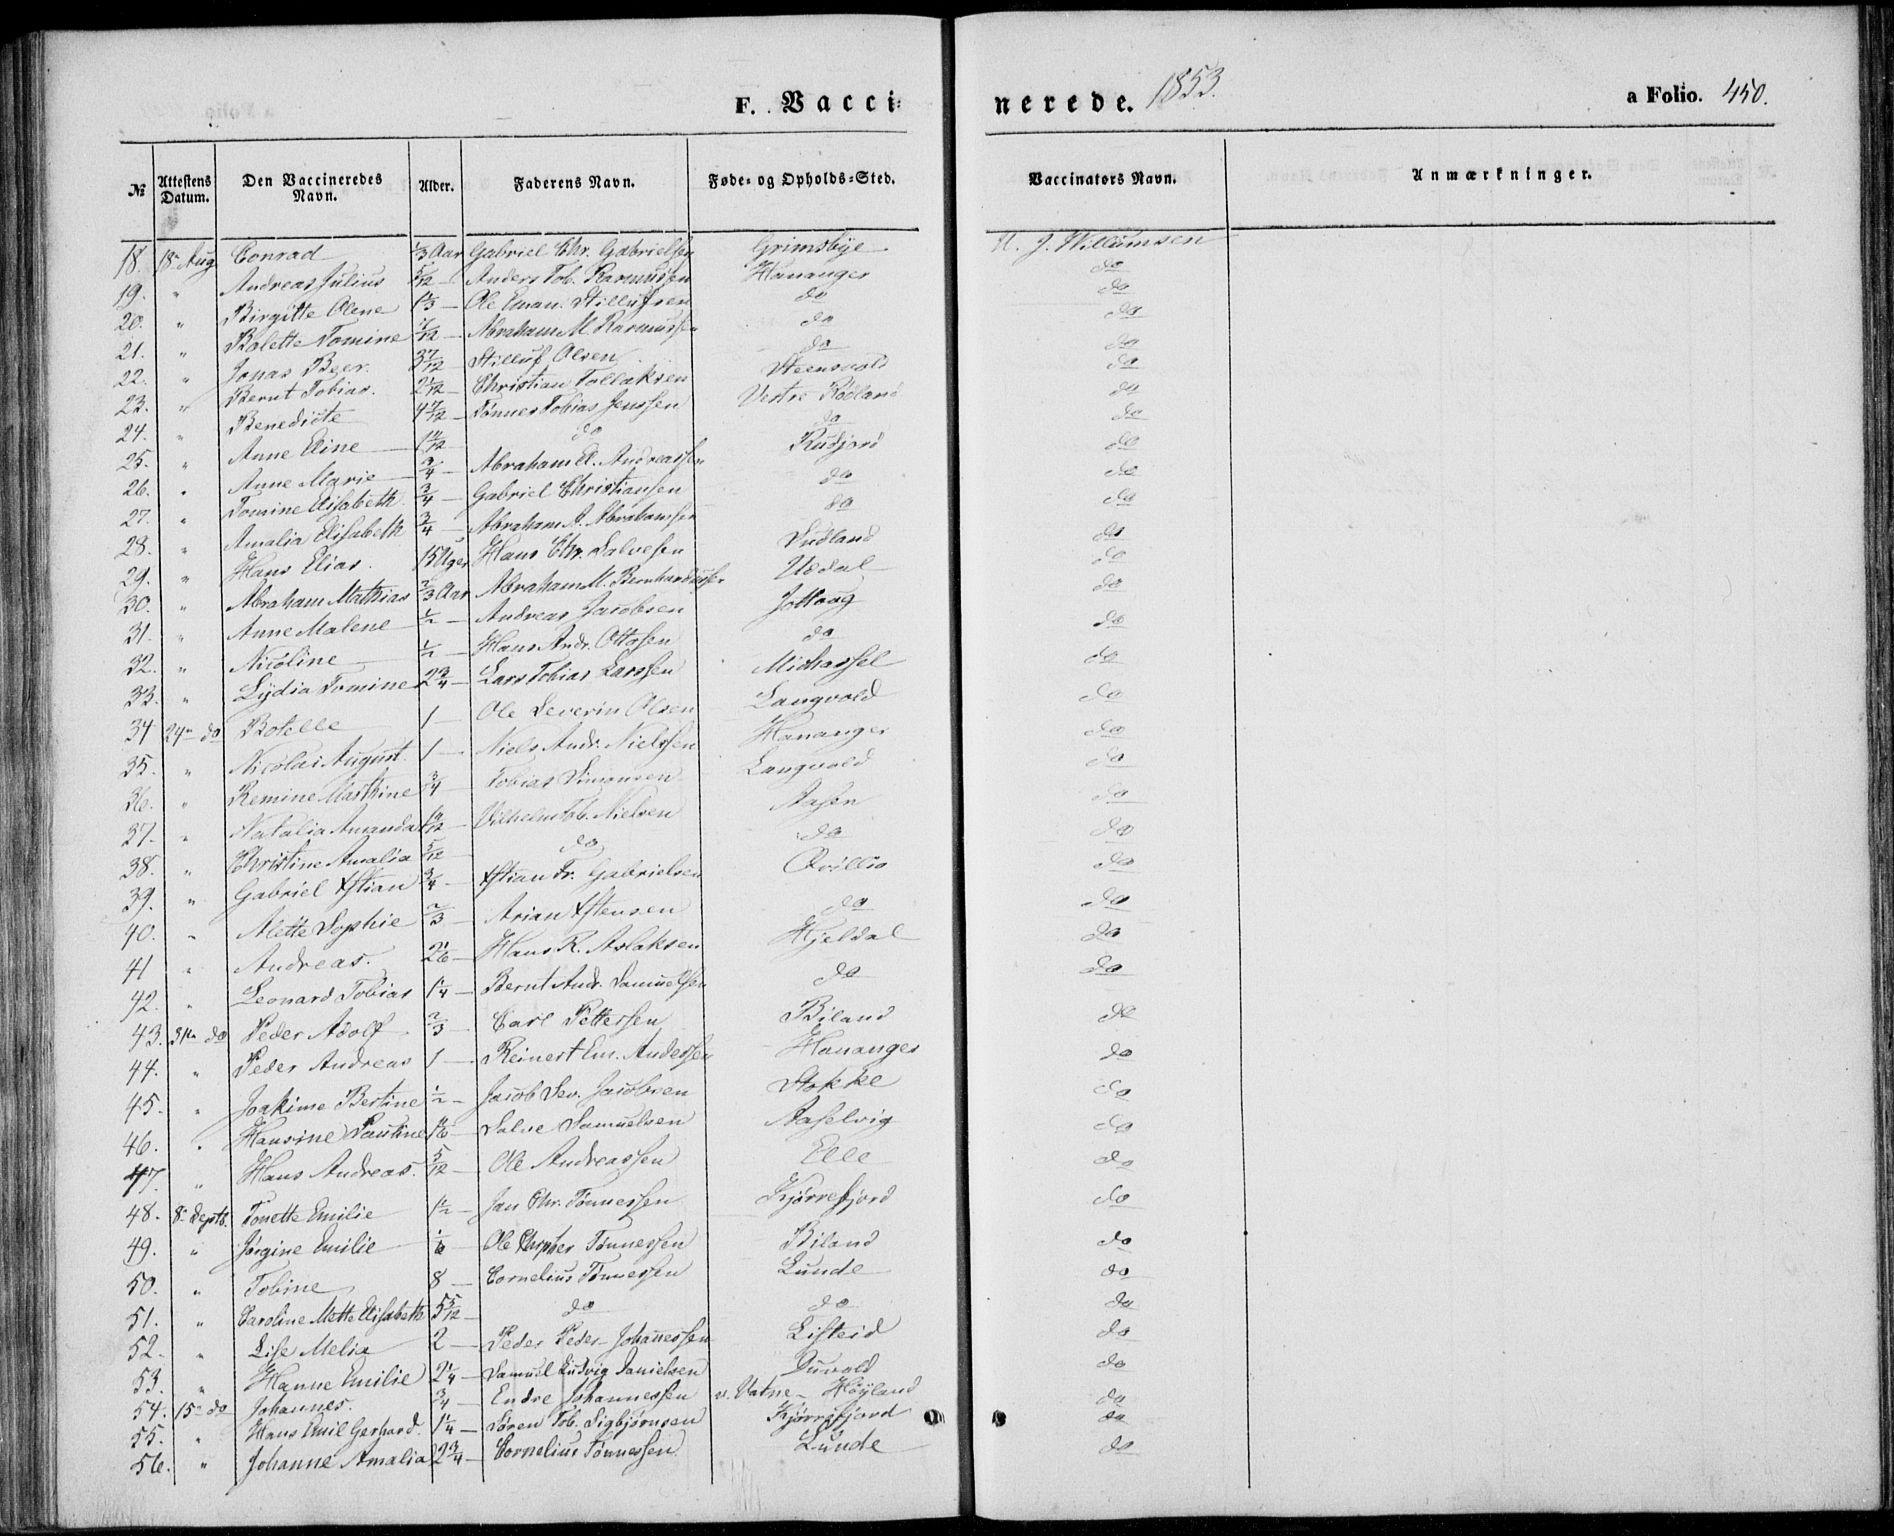 F. Vacci=
nerede. 1853.
a Folio. 450.
№ | Attestens Datum. | Den Vaccineredes Navn. | Alder. | Faderens Navn. | Føde= og Opholds=Sted. | Vaccinators Navn. | Anmærkninger.
18. 18n Aug Conrad 1/3 Aar Gabriel Chr. Gabrielsen Grimsbye J. Willumsen
19. " Andreas Julius 5/12 — Anders Tob. Rasmussen Hananger do
20. " Birgitte Olene 1 1/3 — Ole Eman. Stillufsen do do
21. " Bolette Tomine 7/12 — Abraham M. Rasmussen do do
22. " Jonas Beer. 3 7/12 — Stilluf Olsen do do
23. " Bernt Tobias. 2 1/12 — Christian Tollaksen Steensvold do
24. " Benedicte 4 7/12 — Tønnes Tobias Jenssen Vestre Rødland do
25. " Anne Eline — do do do
26. " Anne Marie 3/4 — Abraham E. Andreassen Rudjord do
27. " Tomine Elisabeth 3/4 — Gabriel Christiansen do do
28. " Amalia Elisabeth 3/4 — Abraham A. Abrahamsen do do
29. " Hans Elias. 15 Uger Hans Chr. Salvesen Sudland do
30. " Abraham Mathias 2/3 Aar Abraham M. Bernhardussen Uedal do
31. " Anne Malene 1/2 — Andreas Jacobsen Jollaag do
32. " Nicoline 1/2 — Hans Andr. Ottosen do do
33. " Lydia Tomine 2 3/4 — Lars Tobias Larssen Midhassel do
34 24n do Botelle 1 — Ole Severin Olsen Langvold do
35. " Nicolai August. 1 — Niels Andr. Nielssen Hananger do
36. " Remine Marthine 3/4 Tobias Simonsen Langvold do
37. " Natalia Amanda — Vilhelm Tob. Nielsen Aasen do
38. " Christine Amalia 5/12 do do do
39. " Gabriel Xstian 3/4 — Xstian Fr. Gabrielsen Qvillio do
40. " Alette Sophie 2/3 — Arian Xstensen do do
41 " Andreas. 2 1/6 — Hans R. Aslaksen Hjeldal do
42. " Leonard Tobias 1 1/4 — Bernt Andr. Samuelsen do do
43. 31n do Peder Adolf 2/3 — Carl Pettersen Biland do
44. " Peder Andreas 1 — Reinert Em. Anderssen Hananger do
45. " Joakime Bertine 1/2 — Jacob Sev. Jacobsen Stokke do
46. " Hansine Pauline 1 1/6 — Salve Samuelsen Aaselvig do
47. " Hans Andreas. 5/12 — Ole Andreassen Elle do
48. 8n Septb. Tonette Emilie 1 1/2 — Jan Chr. Tønnessen Kjørrefjord do
49. " Jørgine Emilie 1/6 — Ole Tønnessen Biland do
50. " Tobine 8 — Cornelius Tønnessen Lunde do
51. " Caroline Mette Elisabeth 5 5/12 — do do do
52. " Lise Melia 2 — Peder Peder Johannessen Listeid do
53. " Hanne Emilie 2 1/4 — Samuel Ludvig Danielsen Duvold do
54. 15n do Johannes. 3/4 — Endre Johannessen v. Vatne - Høyland do
55. " Hans Emil Gerhard. 1 1/4 — Søren Tob. Sigbjørnsen Kjørrefjord do
56. " Johanne Amalia 2 3/4 — Cornelius Tønnessen Lunde do